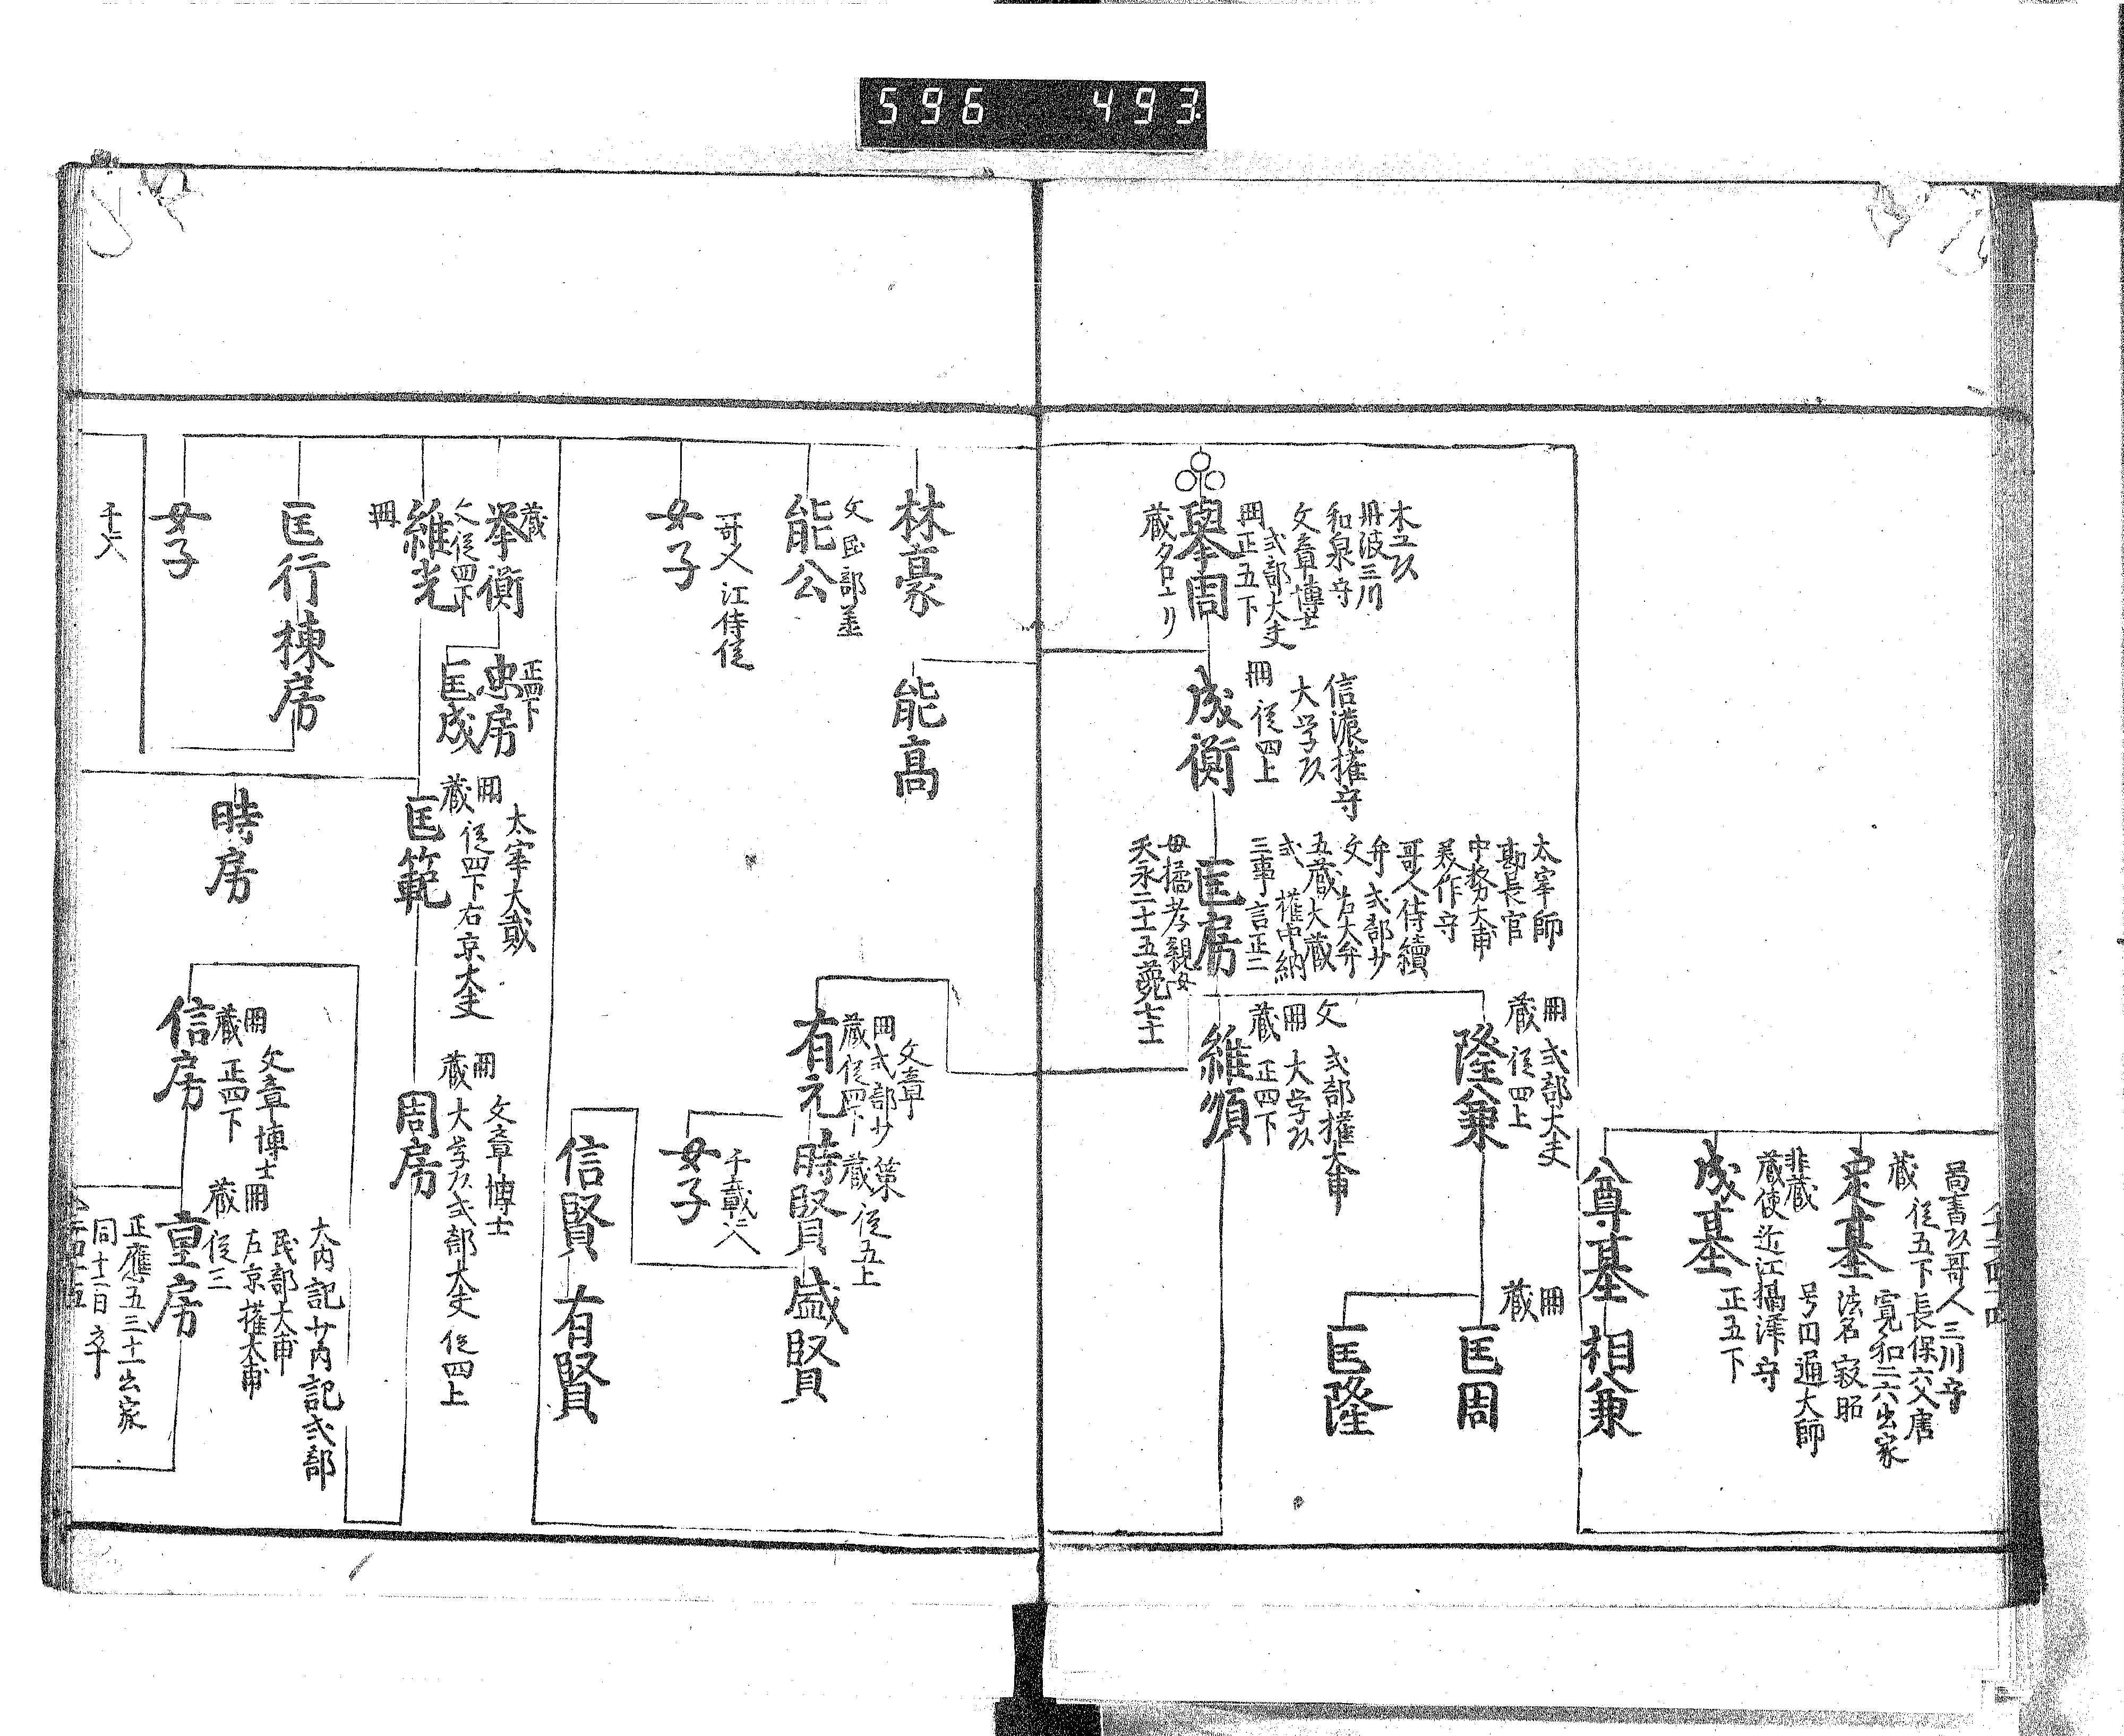 596 493
尚書以哥人三川守
従五下長保六入唐
蔵
寛和二六出家
定基
法名寂昭
号円通大師
非蔵
蔵使近江摂津守
成基
正五下
尊基
相兼
木工以
丹波三川
和泉守
文章博士
式部大夫
正五下
挙周
蔵
信濃権守
大学以
冊 従四上
成衡
太宰帥
勘長官
中務大甫
美作守
哥人侍續
弁式部少
文 右大弁
五蔵大蔵
式 権中納
三事言正二
匡房
母橘孝親女
天永二十五薨七十一
冊 式部大夫
蔵 従四上
隆兼
冊
蔵
匡周
匡隆
文 式部権大甫
冊 大学以
蔵 正四下
維順
林豪
能高
文 民部丞
能公
哥人 江侍従
女子
文章
冊 式部少
蔵 従四下
有元
策
蔵 従五上
時賢
盛賢
千載人
女子
信賢
有賢
蔵
挙衡
正四下
忠房
匡成
文 従四下
維光
冊
太宰大貳
冊
蔵 従四下右京大夫
匡範
文章博士
冊
蔵 大学以式部大夫 従四上
周房
匡行
棟房
女子
時房
文章博士
冊
蔵 正四下
信房
大内記少内記式部
民部大甫
左京権大甫
冊
蔵 従三
重房
正應五三十一出家
同十二日卒
千人